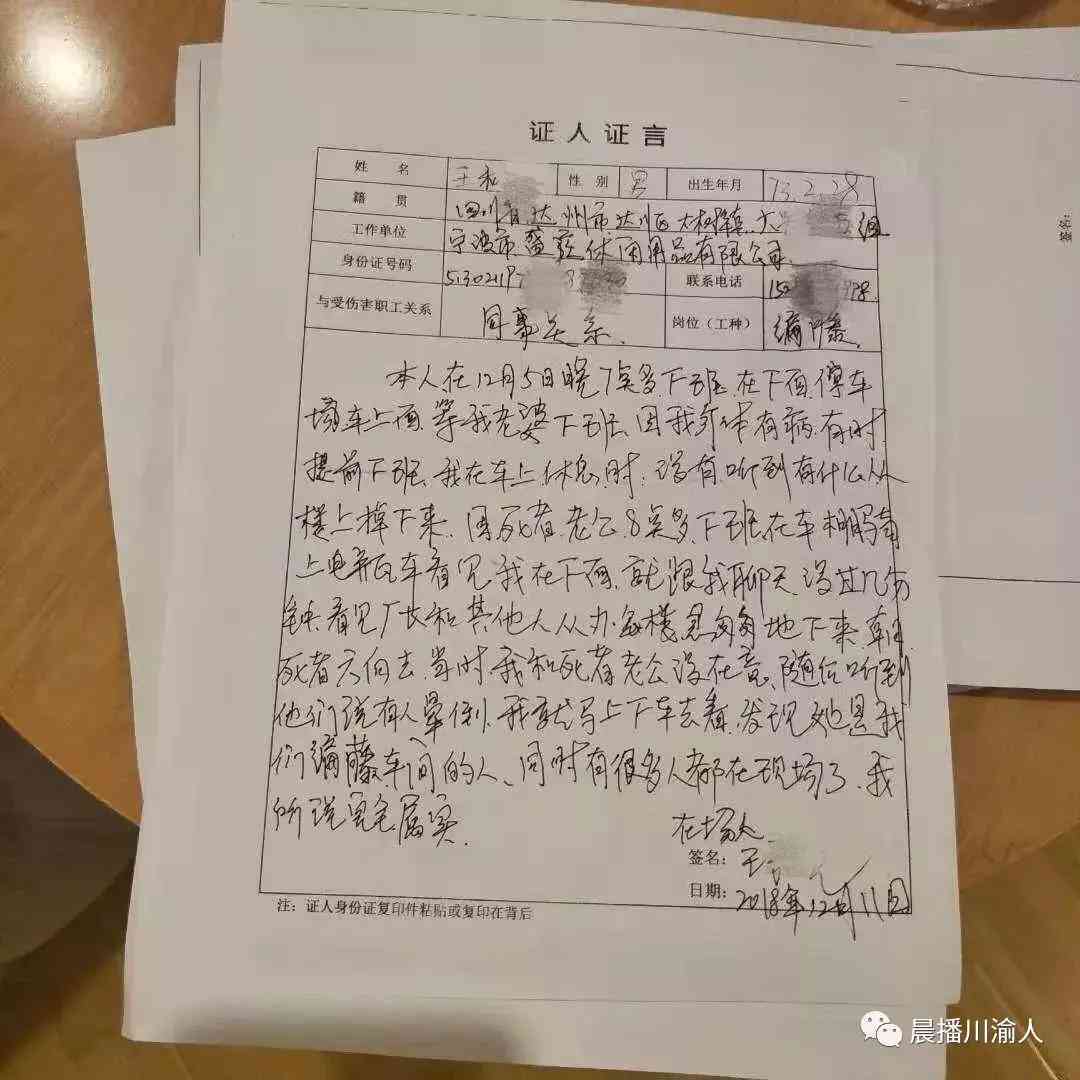 证人证言
姓 名 王 性 别 男 出生年月 73.2.28
籍 贯 四川省达州市达川区大树镇 组
工作单位 宁波市 休闲用品有限公司
身份证号码 5130211 联系电话 15 98.
与受伤害职工关系 同事关系. 岗位（工种） 编藤.
本人在12月5日晚7点多下班.在下面停车
场车上面.等我老婆下班.因我身体有病.有时
提前下班.我在车上休息时.没有听到有什么从
楼上掉下来.因死者老公8点多下班.在车棚骑
上电瓶车看见我在下面.就跟我聊天.没过几分
钟.看见厂长和其他人从办公楼急匆匆地下来.朝
死者方向去.当时我和死者老公没在意.随后听到
他们说有人晕倒.我就马上下车去看.发现她是我
们编藤车间的人、同时有很多人都在现场了.我
所说完全属实.
在场人.
签名：王
日期：2018年12月11日
注：证人身份证复印件粘贴或复印在背后
晨播川渝人